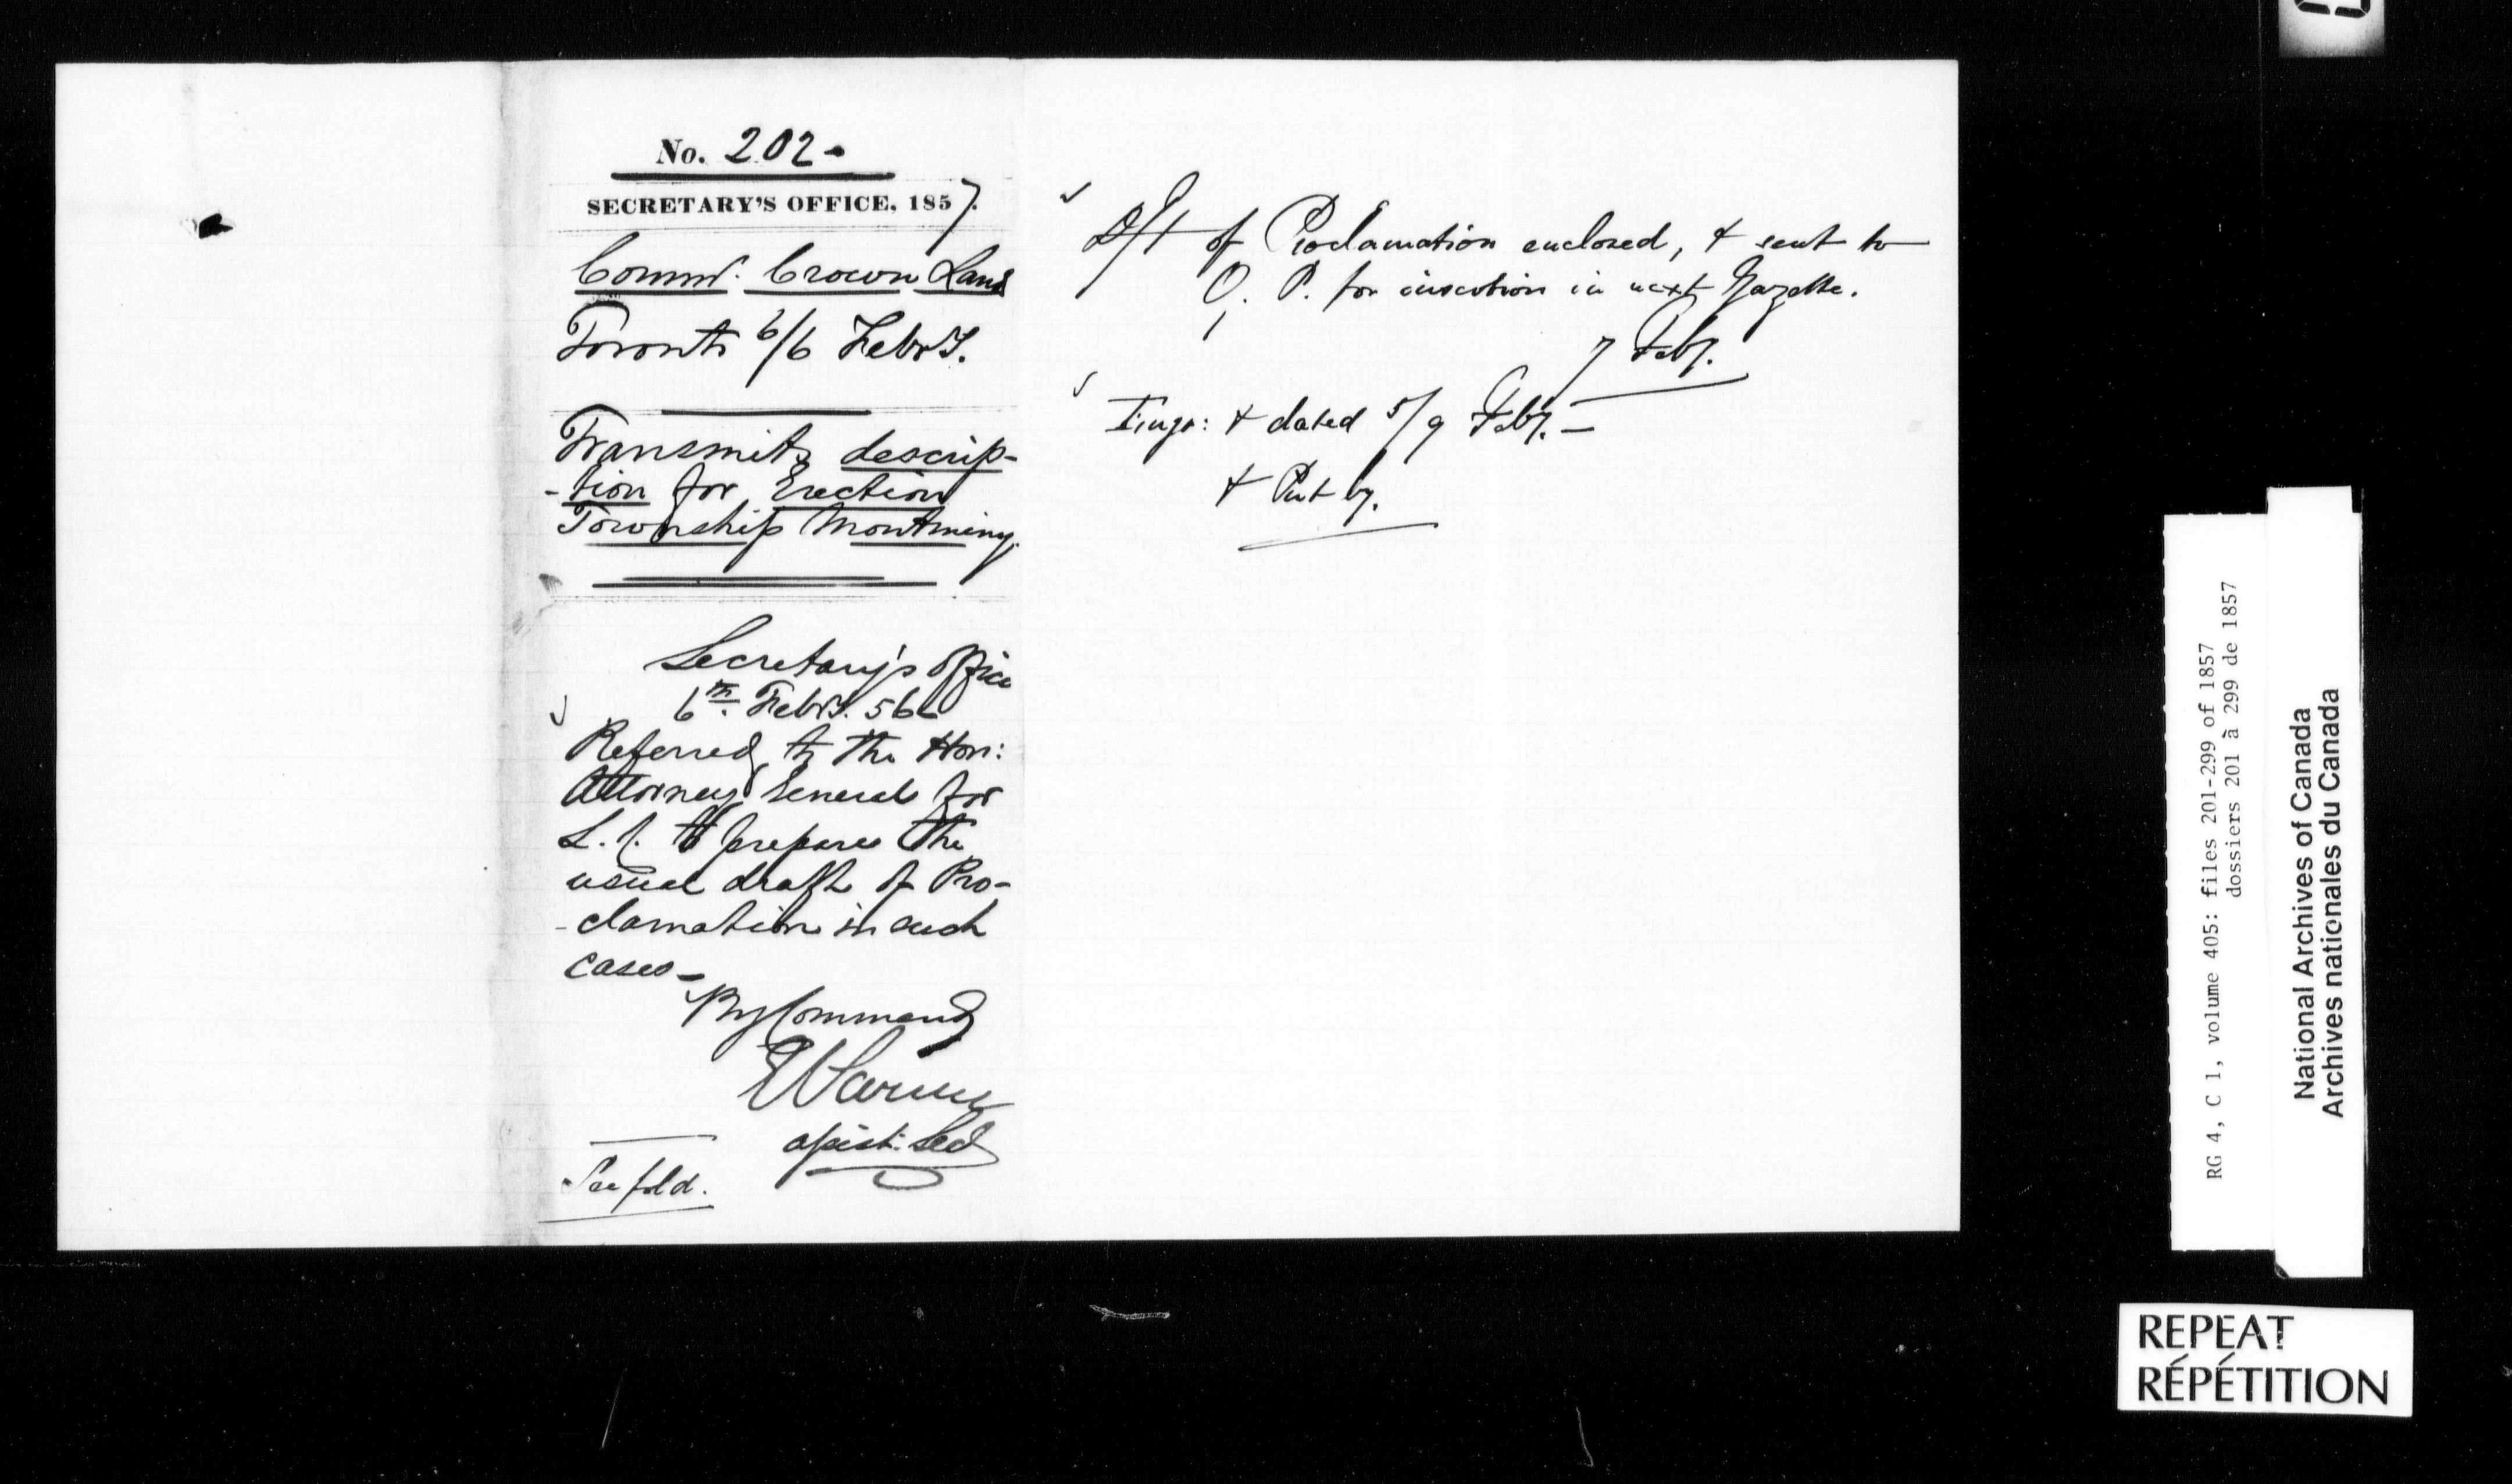 No. 202-
SECRETARY'S OFFICE, 1857.
Commr. Crown Land
Toronto 6/6 Febry.
Transmits descrip-
-tion for Erection
Township Montminy.
Secretary's Office
6th. Febry. 56
Referred to the Hon:
Attorney General for
L. C. to prepare the
usual draft of Pro-
-clamation in such
cases-
By Command
E Parent
assist: Sec
See fold.
Dft of Proclamation enclosed, & sent to
Q. P. for insertion in next Gazette.
7 Feby.
& dated 5/9 Feby. -
& Put by.
RG 4, C 1, volume 405: files 201-299 of 1857
dossiers 201 à 299 de 1857
National Archives of Canada
Archives nationales du Canada
REPEAT
RÉPÉTITION